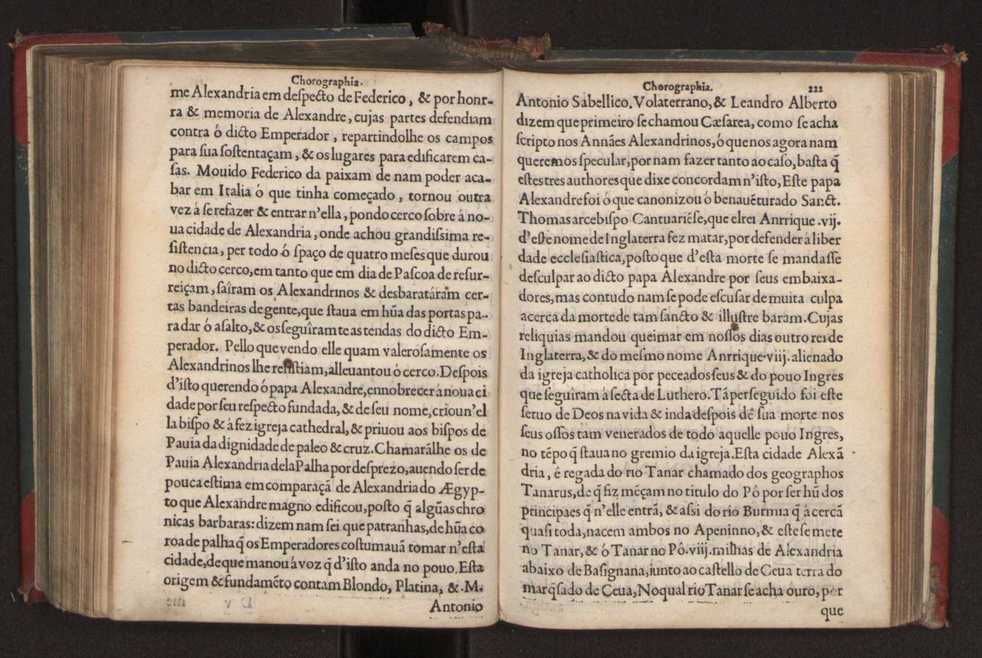 Chorographia.
me Alexandria em despecto de Federico, & por honr-
ra & memoria de Alexandre, cujas partes defendiam
contra ó dicto Emperador, repartindolhe os campos
para sua sostentaçam, & os lugares para edificarem ca-
sas. Mouido Federico da paixam de nam poder aca-
bar em Italia ó que tinha começado, tornou outra
vez á se refazer & entrar n'ella, pondo cerco sobre á no-
ua cidade de Alexandria, onde achou grandissima re-
sistencia, per todo ó spaço de quatro meses que durou
no dicto cerco, em tanto que em dia de Pascoa de resur-
reiçam, saíram os Alexandrinos & desbaratáram cer-
tas bandeiras de gente, que staua em hũa das portas pa-
ra dar ó asalto, & os seguîram te as tendas do dicto Em-
perador. Pello que vendo elle quam valerosamente os
Alexandrinos lhe resistiam, alleuantou ó cerco. Despois
d'isto querendo ó papa Alexandre, ennobrecer á noua ci
dade por seu respecto fundada, & de seu nome, criou n'el
la bispo & á fez igreja cathedral, & priuou aos bispos de
Pauia da dignidade de paleo & cruz. Chamarãlhe os de
Pauia Alexandria dela Palha por desprezo, auendo ser de
pouca estima em comparaçã de Alexandria do Ægyp-
to que Alexandre magno edificou, posto q̃ algũas chro
nicas barbaras: dizem nam sei que patranhas, de hũa co
roa de palha q̃ os Emperadores costumauã tomar n'esta
cidade, de que manou á voz q̃ d'isto anda no pouo. Esta
origem & fundamẽto contam Blondo, Platina, & .M.
Antonio
Chorographia. 222
Antonio Sabellico. Volaterrano, & Leandro Alberto
dizem que primeiro se chamou Cæsarea, como se acha
scripto nos Annães Alexandrinos, ó que nos agora nam
queremos specular, por nam fazer tanto ao caso, basta q̃
estes tres authores que dixe concordam n'isto, Este papa
Alexandre foi ó que canonizou ó benauẽturado Sanct.
Thomas arcebispo Cantuariẽse, que elrei Anrrique .vij.
d'este nome de Inglaterra fez matar, por defender á liber
dade ecclesiastica, posto que d'esta morte se mandasse
desculpar ao dicto papa Alexandre por seus embaixa-
dores, mas contudo nam se pode escusar de muita culpa
acerca da morte de tam sancto & illustre baram. Cujas
reliquias mandou queimar em nossos dias outro rei de
Inglaterra, & do mesmo nome Anrrique.viij. alienado
da igreja catholica por peccados seus & do pouo Ingres
que seguiram á secta de Luthero. Tã perseguido foi este
seruo de Deos na vida & inda despois de sua morte nos
seus ossos tam venerados de todo aquelle pouo Ingres,
no tẽpo q̃ staua no gremio da igreja. Esta cidade Alexã
dria, é regada do rio Tanar chamado dos geographos
Tanarus, de q̃ fiz mẽçam no titulo do Pó por ser hũ dos
principaes q̃ n'elle entrã, & assi do rio Burmia q̃ á cercã
quasi toda, nacem ambos no Apeninno, & este se mete
no Tanar, & ó Tanar no Pó. viij. milhas de Alexandria
abaixo de Basignana, iunto ao castello de Ceua terra do
marq̃sado de Ceua, No qual rio Tanar se acha ouro, por
que